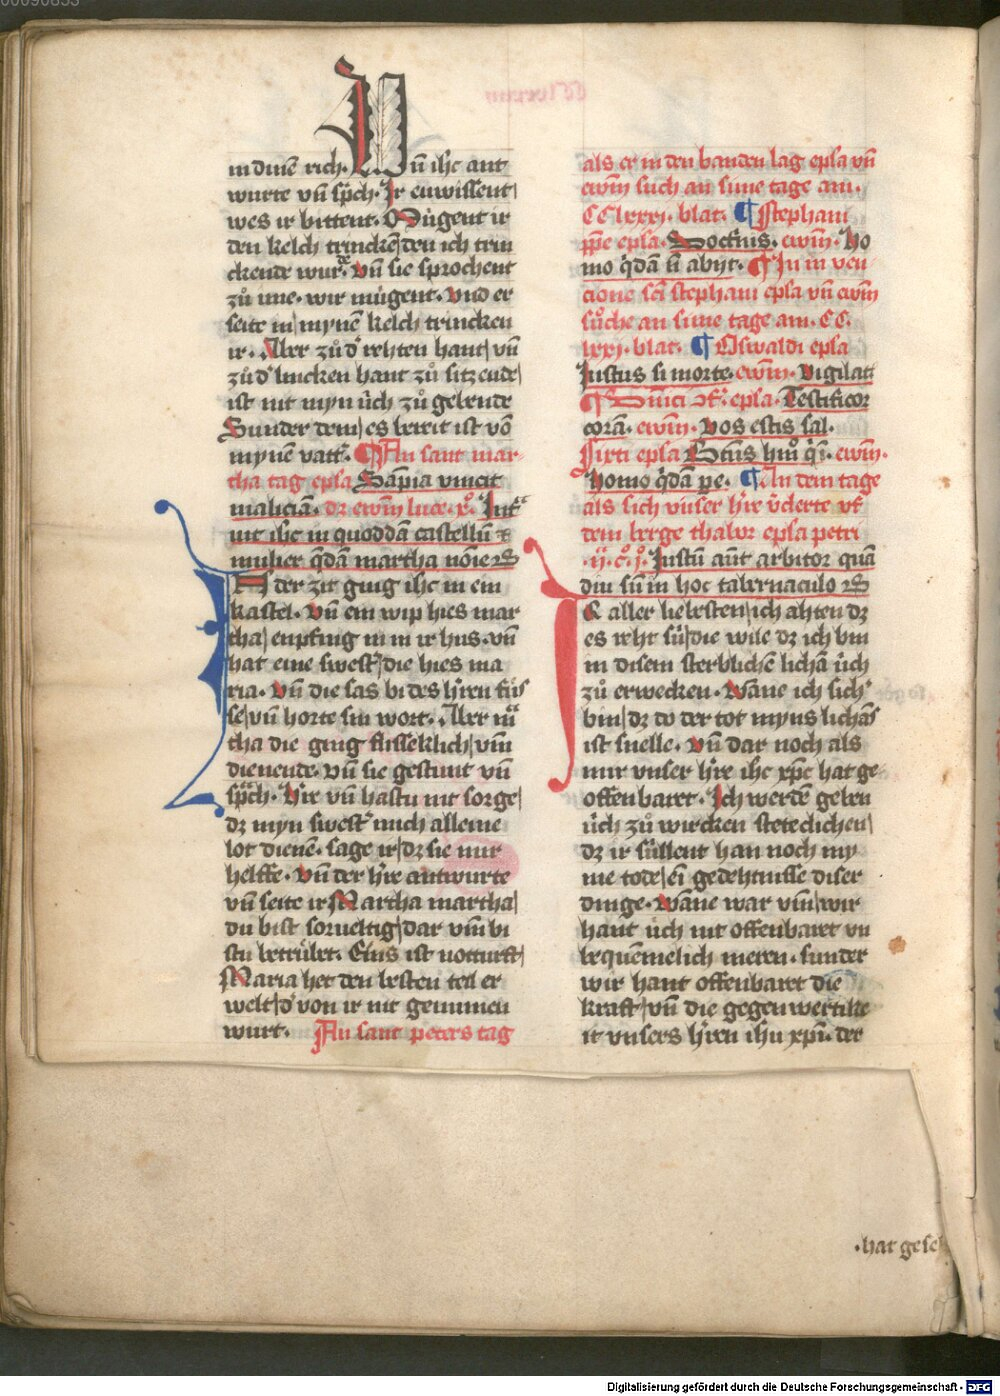 00090835
in dinē rich. Vñ ihc ant
wurte vñ sp̄ch. Ir enwissent
wes ir bittent. Mügent ir
den kelch trincken den ich trin
ckende wur. Vñ sie sprochent
zů ime. wir mügent. Vnd er
seite in mynē kelch trincken
ir. Aber zů d' rehten hant vñ
zů d' lincken hant zů sitzende
ist nit myn üch zů gebende
Sunder dem es bereit ist vō
mynē vatt'. ¶ An sant mar
tha tag epl̄a Sapīa vincit
maliciā. dz ewm̄ luce. x°. Intͣ
uit ihc in quoddā castellū ⁊
mulier q̄dā martha nōie
In der zit ging ihc in ein
kastel. Vñ ein wip hies mar
tha enpfing in in ir hus. vñ
hat eine swest' die hies ma
ria. Vñ die sas bi des h're͞n fůs
se vñ horte sin wort. Aber m͞a
tha die ging flisseklich vm̄
dienende. Vñ sie gestunt vñ
sp̄ch. H're vñ hastu nit sorge
dz myn swest' mich alleine
lot dienē. sage ir dz sie mir
helffe. Vñ der h're antwurte
vñ seite ir Martha martha
du bist sorueltig dar vm̄ bi
stu betrübet. Eins ist notturft
Maria het den besten teil er
welt d' von ir nit genummen
wurt. An sant peters tag
als er in den banden lag epl̄a vñ
ewm̄ such an sime tage am.
CClxxxj. blat. ¶ Stephani
pp̄e epl̄a. ewm̄. Ho
mo q̄dā abijt. ¶ In in ven
cione scī stephani epl̄a vñ ewm̄
sůche an sime tage am. CC.
lxxj. blat. ¶ Oswaldi epl̄a
Iustus si morte. ewm̄. Vigilate
epl̄a. Testificor
corā. ewm̄. Vos estis sal.
Sixti epl̄a ewm̄.
Homo q̄dā pe. ¶ An dem tage
als sich vnser h're v̄clerte vf
dem berge thabor epl̄a petri
.ij. c°. j°. Iustū aūt arbitor quā
diu sū in hoc tabernaculo
Ir aller liebesten ich ahten dz
es reht sü die wile dz ich bin
in disem sterblichē lichā üch
zů erwecken. Wāne ich sich'
bin dz do der tot myns lichās
ist snelle. Vñ dar noch als
mir vnser h're ihc xp̄c hat ge
offenbaret. Ich werdē geben
üch zů wircken stetecliche͞n
dz ir süllent han noch my
me tode ein gedehtnisse diser
dinge. Wāne war vm̄ wir
hant üch nit offenbaret vn
bequēmelich meren. sunder
wir hant offenbaret die
kraft vñ die gegenwertike
it vnsers h're͞n ihu xp̄i. der
.hat gese
Digitalisierung gefördert durch die Deutsche Forschungsgemeinschaft - DFG